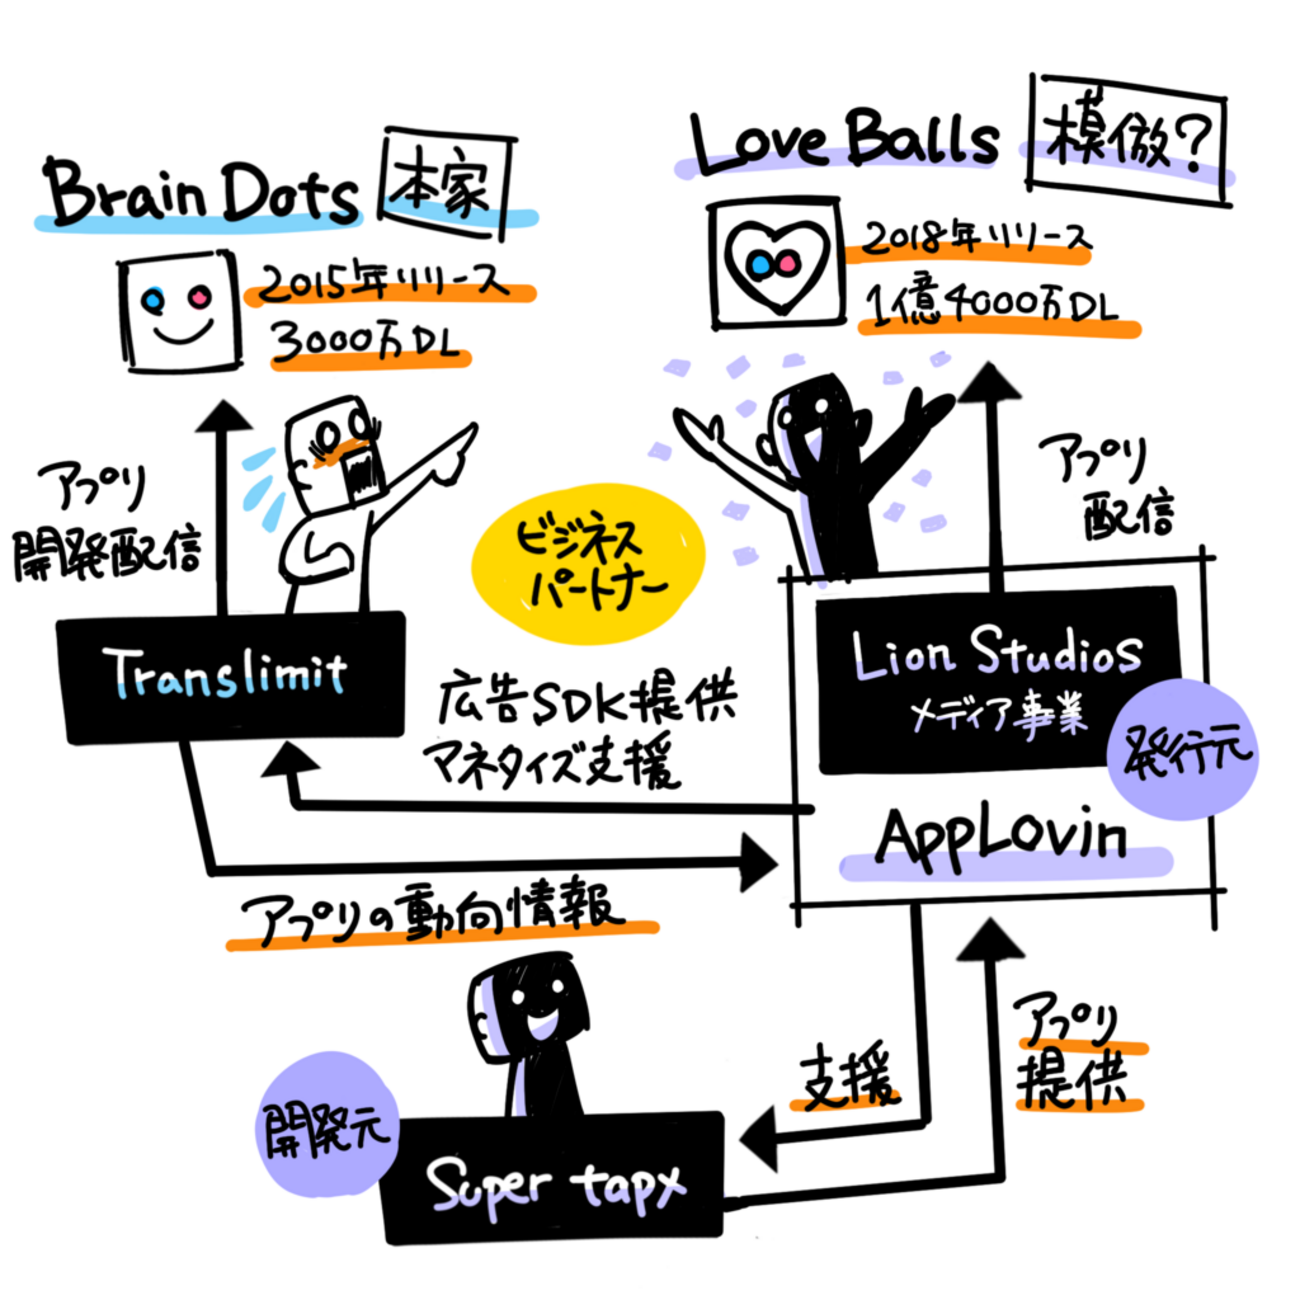 Brain Dots
本家
2015年リリース
3000万DL
Love Balls
模倣?
2018年リリース
1億4000万DL
アプリ
開発配信
Translimit
ビジネス
パートナー
アプリ
配信
Lion Studios
メディア事業
発行元
AppLovin
広告SDK提供
マネタイズ支援
アプリの動向情報
支援
アプリ
提供
開発元
Super tapx